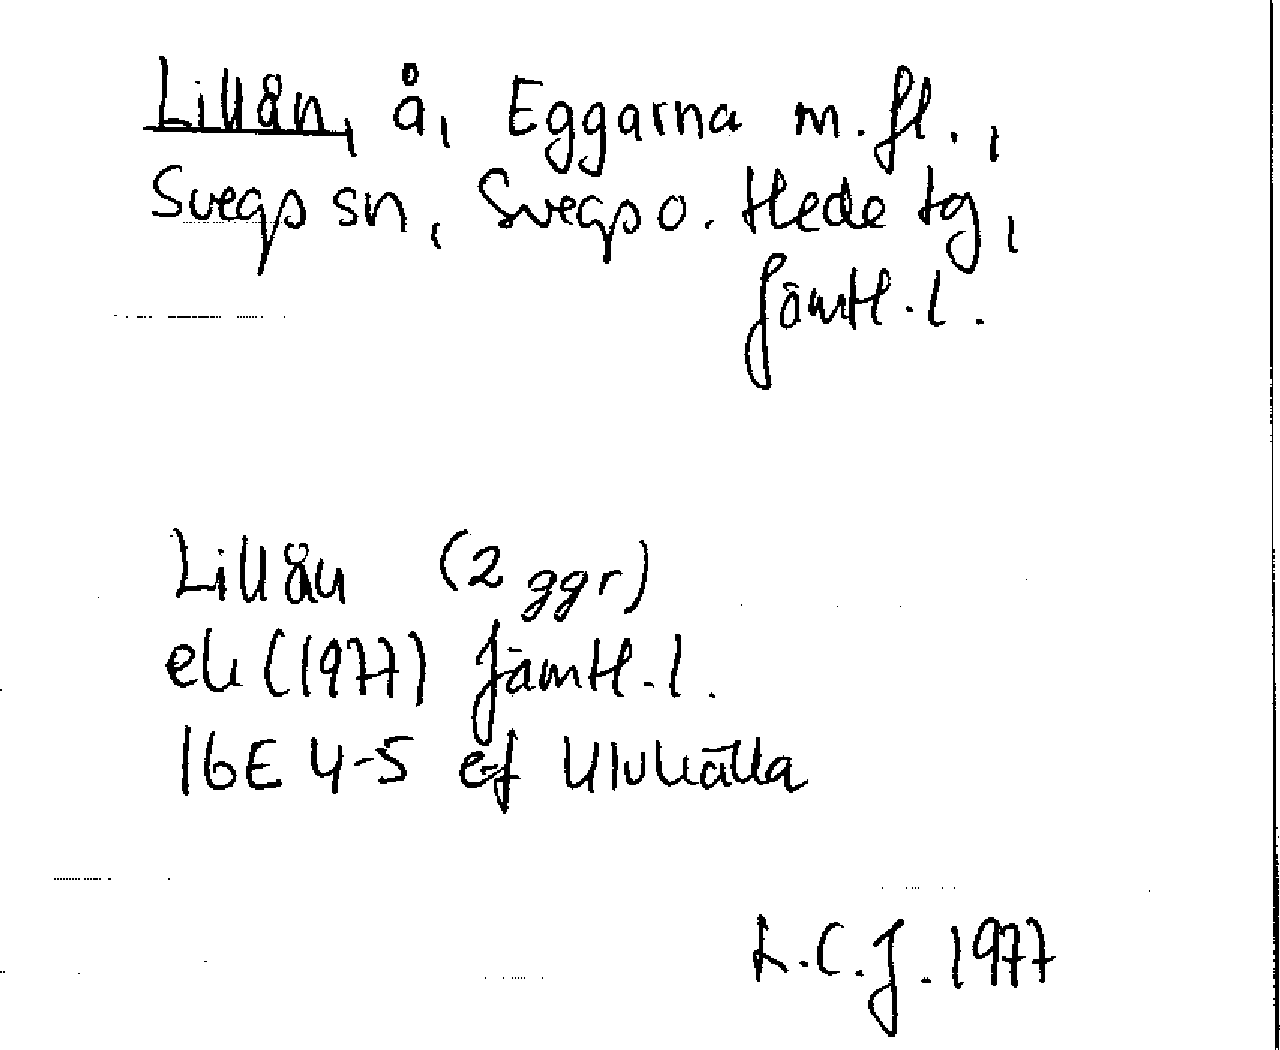 Lillån, å, Eggarna m.fl.,
Svegs sn, Svegs o. Hede tg,
Jämtl.l.
Lillån (2 ggr)
ek (1977) Jämtl.l.
16E 4-5 ef Ulvkälla
L.C.J. 1977